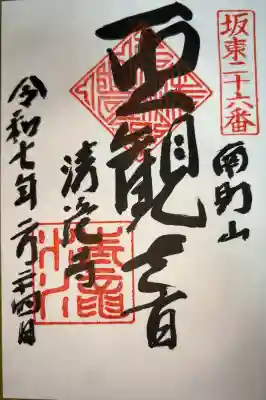 坂東二十六番
南明山
聖観世音
清瀧寺
令和七年二月二十四日